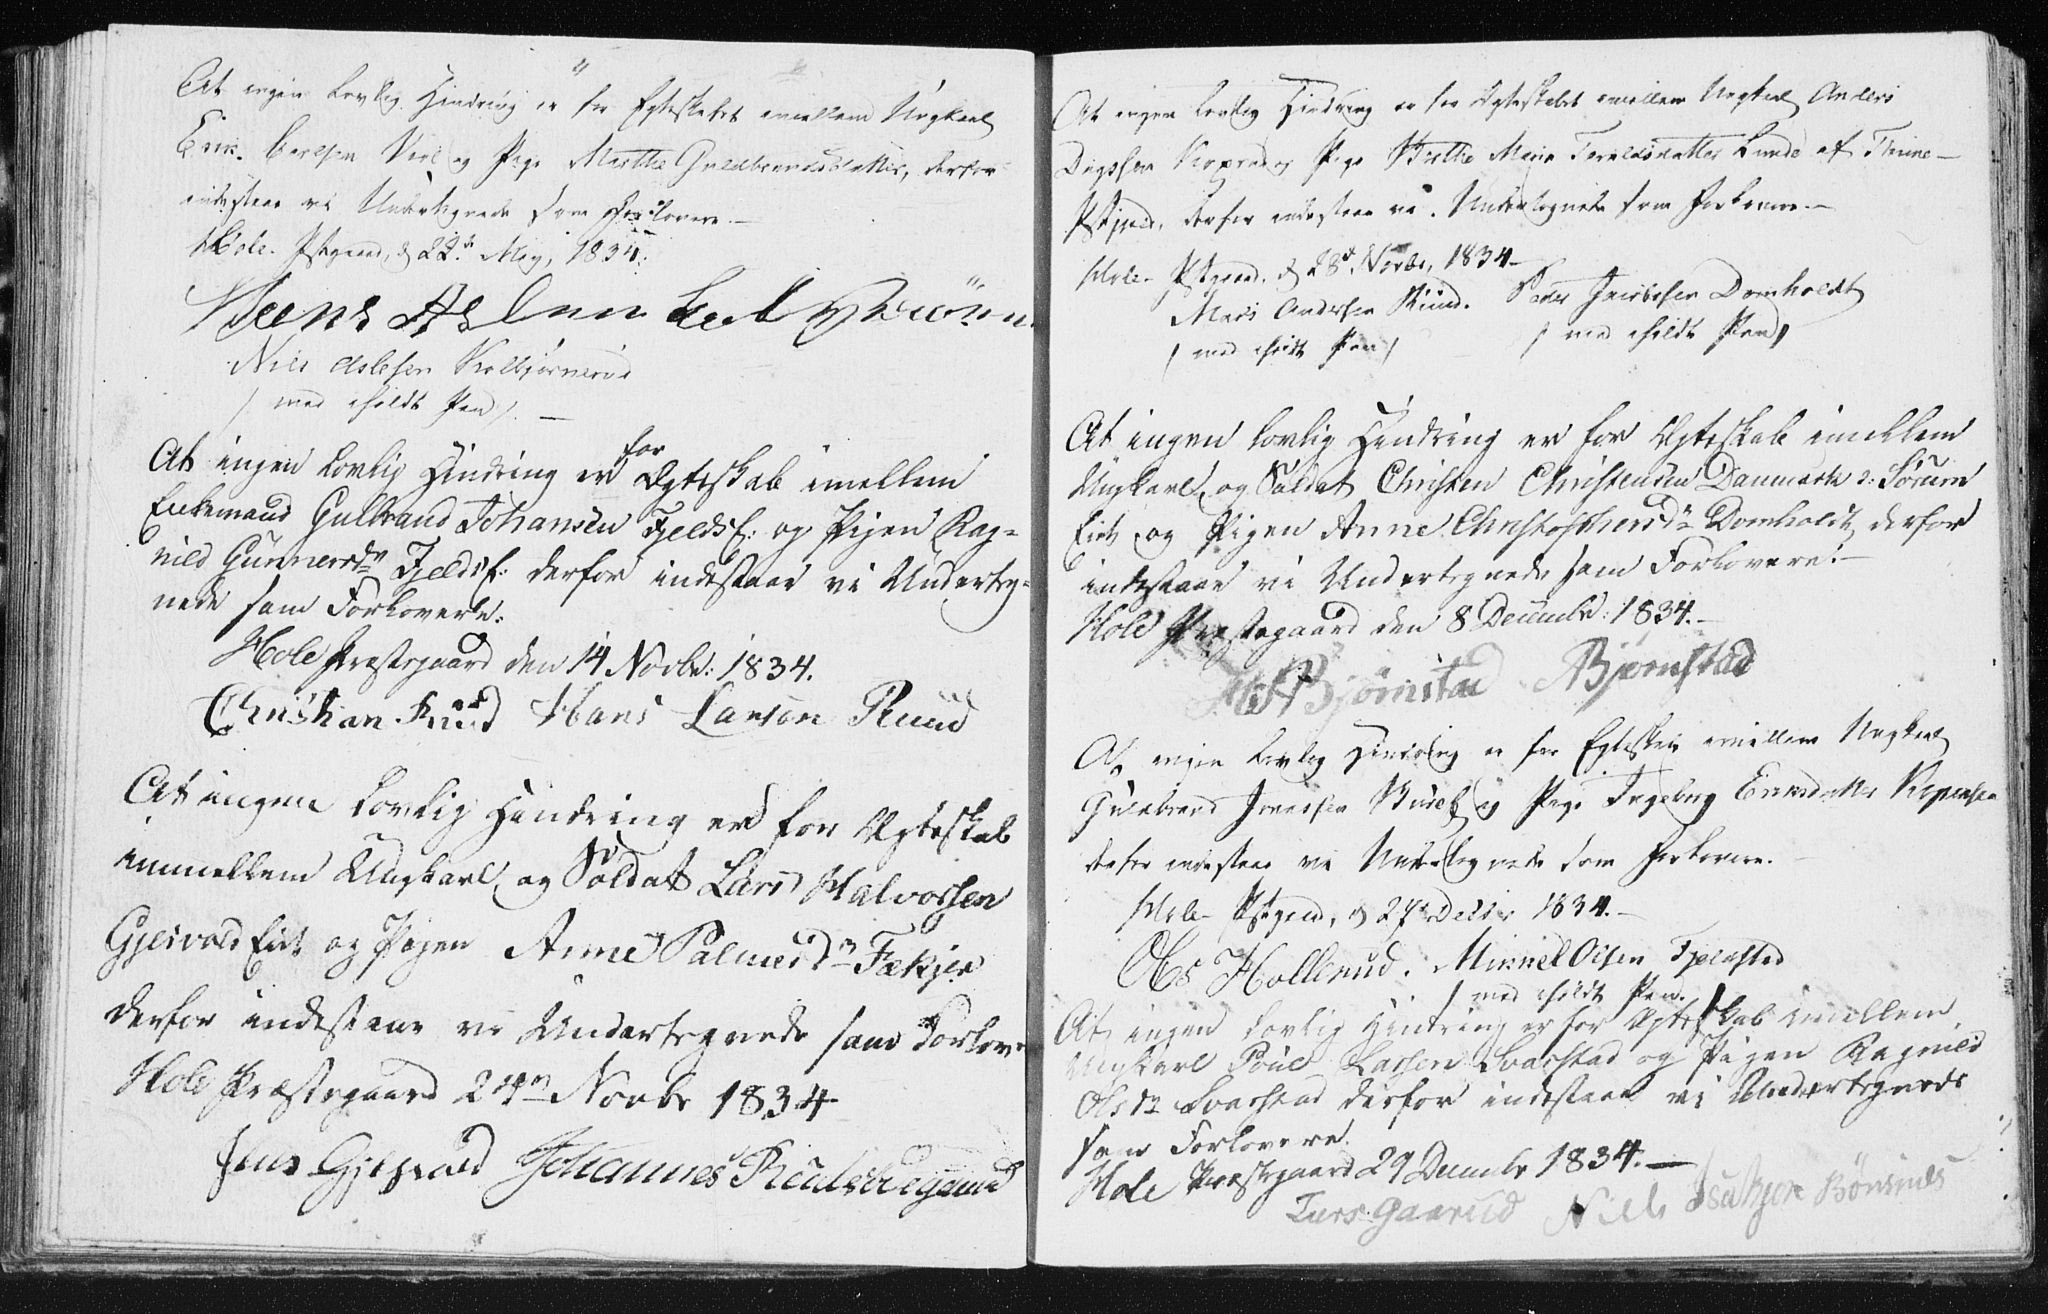 At ingen Lovlig Hindring er for Egteskabet emellem Ungkarl
Erik Carlsen Viol og Pige Marthe Guldbrandsdatter, derfor
indestaae vi Undertegnede som Forlovere.—
Hole Pstgaard, d 22de May, 1834.
Niels Aslesen Kolbjørnerud
/ med iholdt Pen / —
At ingen lovlig Hindring er for Ægteskab imellem
Enkemand Gulbrand Johansen Fjelds: og Pigen Rag-
nild Gunnersdr Fjelds: derfor indestaae vi Underteg-
nede som Forlovere.
Hole Præstegaard den 14 Novbr: 1834.
Christian Ruud Hans Larsen Ruud
At ingen lovlig Hindring er for Ægteskab
immellem Ungkarl og Soldat Lars Halvorsen
Gjesvold Eiet og Pigen Anne Palmesdr Fækjer
derfor indestaae vi Undertegnede som Forlove
Hole Præstegaard 24de Novbr 1834
Jens Gjesvold Johannes
At ingen Lovlig Hindring er for Ægteskabet emellem Ungkarl Anders
Dagssen og Pige Birthe Maria Taraldsdatter Lunde af
Pstgield, derfor indestaae vi Undertegnede som Forlovere.—
Hole Pstgaard, d 28de Novbr, 1834—
Mads Andersen Ruud. Peder Jacobsen Domholdt
/ med iholdt Pen / / med iholdt Pen /
At ingen lovlig Hindring er for Ægteskab imellem
Ungkarl og Soldat Christen Christensen Danmark v: Sørum
Eiet og Pigen Anne Christophersdr Domholdt derfor
indestaae vi Undertegnede som Forlovere.—
Hole Præstegaard den 8 Decembr: 1834.—
Bjørnstad ABjørnstad
At ingen Lovlig Hindring er for Egteskab emellem Ungkarl
Guldbrand Jonassen og Pige Ingeborg Eriksdatter
derfor indestaae vi Undertegnede som Forlovere.—
Hole Pstgaard, d 27de Decbr 1834.—
Ols Hollerud. Mikkel Olsen Fjeldstad
/ med iholdt Pen. /
At ingen lovlig Hindring er for Ægteskab imellem
Ungkarl Poul Larsen Svarstad og Pigen Ragnild
Olsdr Svarstad derfor indestaae vi Undertegnede
som Forlovere.
Hole Præstegaard 29 Decembr 1834.—
Lars Gaarud Niels